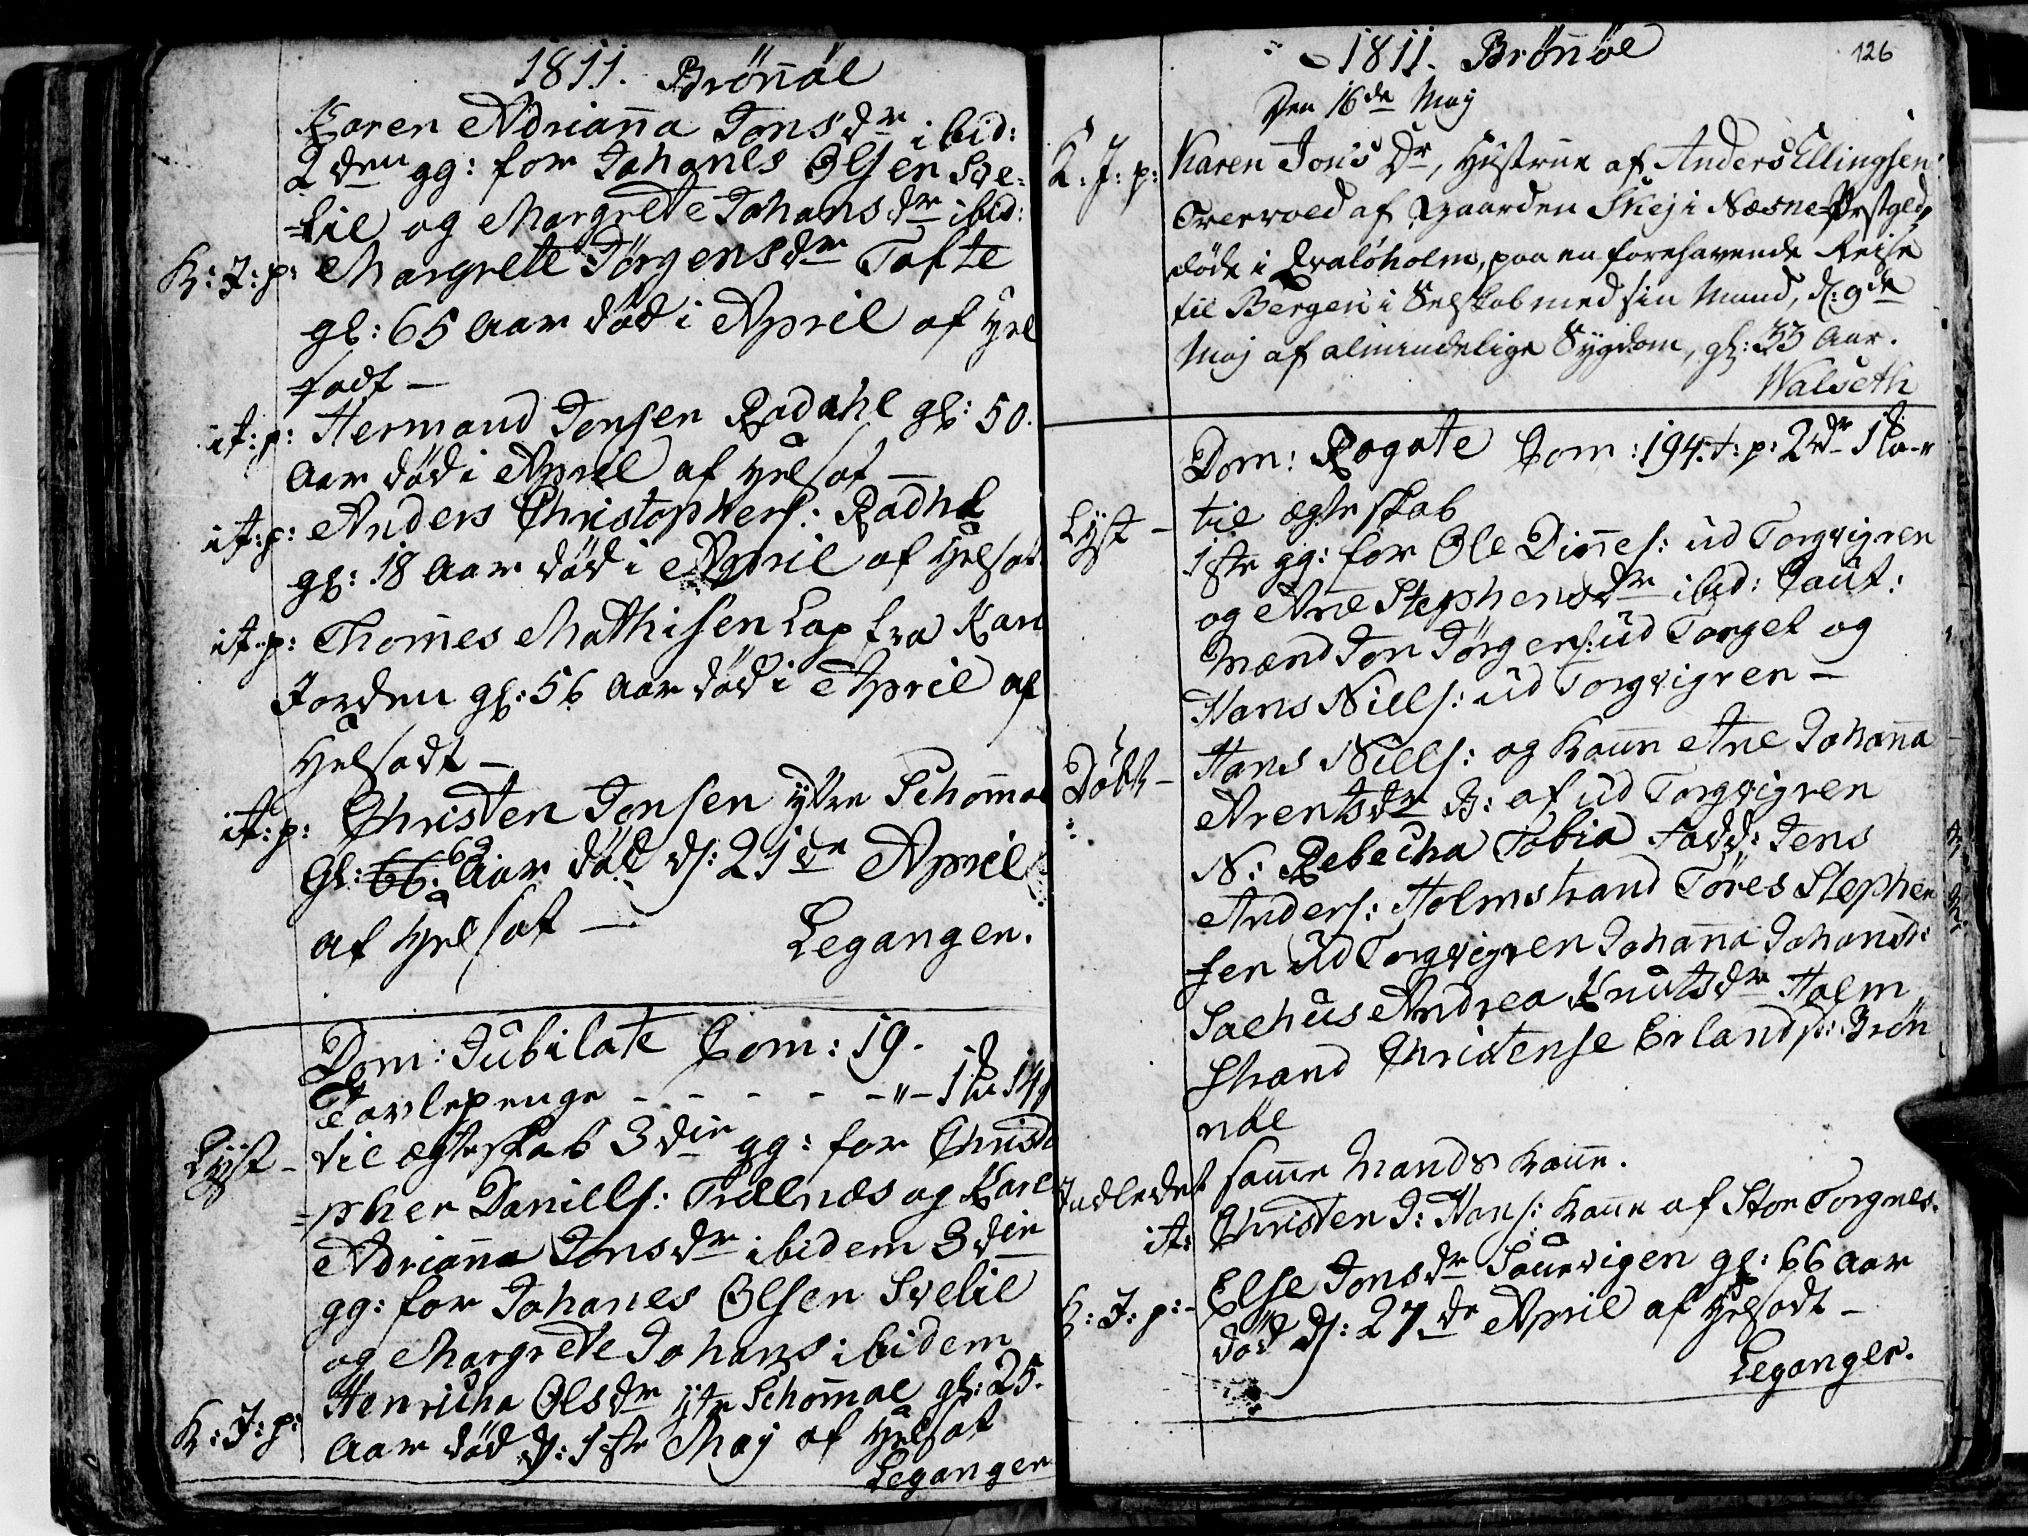 1811. Brönöe
Karen Adrianna Jonsdr ibid:
2den gg: for Johanes Olsen Sve-
-lie og Margrete Johansdr ibid:
K: J: p: Margrete Jörgensdr Tofte
gl: 65 Aar död i April af
sodt —
it: p: Hermand Jonsen Rodahl gl: 50.
Aar död i April af Helsot —
it: p: Anders Christophers: Rodhl
gl: 18 Aar död i April af Helsot
it: p: Thomes Mathisen Lap fra
Jorden gl: 56 Aar död i April af
Helsodt —
it: p: Christen Jonsen ytre Schomoe
Gl: 66. Aar död d: 21de April
af Helsot —
Legangen.
Dom: Jubilate Com: 19.
Tavlepenge - - - - - " -
Lyst - til ægteskab 3die gg: for Christo
=pher Daniels: Trælnæs og Karen
Adrianna Jonsdr ibidem 3die
gg: for Johanes Olsen Svelie
og Margrete Johans: ibidem
K: J: p: Henricha Olsdr ytr Schomoe gl: 25.
Aar död d: 1ste Maj af Helsot
Leganger
126
1811. Brönöe
Den 16de Maj
K: J: p: Karen Jons Dr, Hustrue af Anders Ellingsen
af Gaarden i Næsne Prstgld,
döde i Qvalöholm, paa en forehavende Reise
til Bergen i Selskab med sin Mand, d: 9de
Maj af almindelige Sygdom, gl: 33 Aar.
Walseth
Dom: Rogate Com: 194. t: p: 2dr
til ægteskab
Lyst - 1ste gg: for Ole Dines: ud Torgvigren
og Ane Stephensdr ibid: Caut:
Mænd Jon Jörgens: ud Torget og
Hans Niels: ud Torgvigren —
Döbt - Hans Niels: og Kone Ane Johanna
Arentsdr B: af ud Torgvigren
N: Rebecha Tobia Fadd: Jens
Anders: Holmstrand Töres Stephen
sen ud Torgvigren Johanna Johansd:
Saehus Andrea Knutsdr Holm
strand Christense Erlandsd: Brön
nöe
Indledet samme Mands Kone.
it: Christen J: Hans: Kone af Stor Torgnes.
K: J: p: - Else Jonsdr Sauevigen gl: 66 Aar
död d: 27de April af Helsodt —
Leganger.